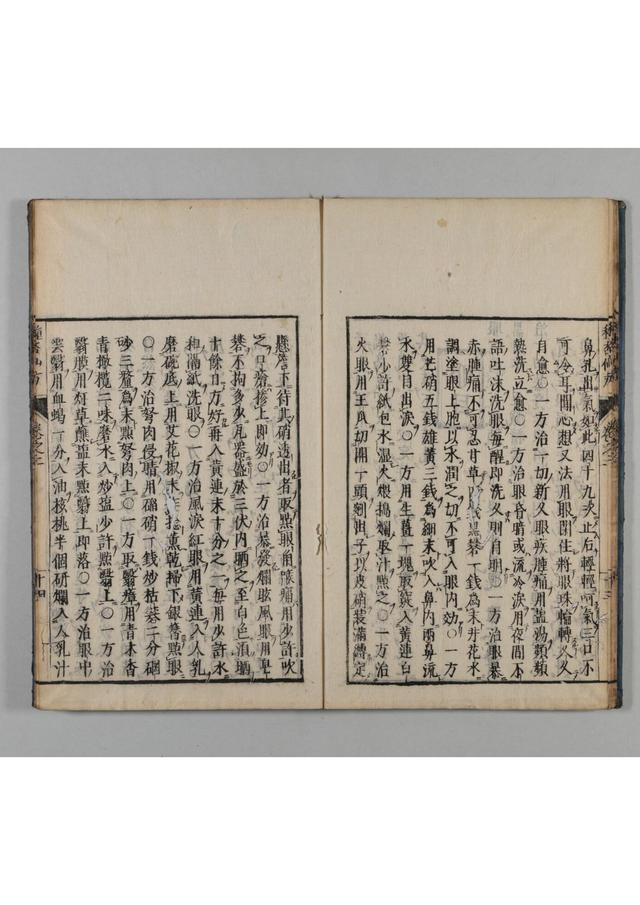 鼻孔出氣如此四十九次止右輕輕呵氣三口不
可令耳聞心想又法用眼閉住將眼珠輪轉久久
自愈〇一方治一切新久眼疾腫痛用塩湯頻頻
熱洗立愈〇一方治眼昏暗或流冷淚用夜間不
語吐沫洗眼每醒即洗久則自明〇一方治眼暴
赤腫痛不可忍甘草 黑礬一錢為末井花水
調塗眼上胞以水潤之切不可入眼内效〇一方
用芒硝五錢雄黃三錢為細末吹入鼻内兩鼻流
水雙目出淚〇一方用生薑一塊 入黃連白
礬少許紙包水湿火煨搗爛取汁點之〇一方治
火眼用王瓜切開一頭 出子以皮硝裝滿縛定
懸簷下待其硝透出者取點眼角 痛用少許吹
之口瘡摻上即効〇一方治暴發爛眩風眼用皂
礬不拘多少瓦器盛於三伏内晒之至白色須晒
十餘日方好再入黃連末十分之一每用少許水
和隔紙洗眼〇一方治風淚紅眼用黃連入人乳
磨碗底上用艾花椒末 薰乾掃下銀簪點眼
〇一方治努肉侵睛用硼硝一錢炒枯礬二分硇
砂三釐為末點努肉上〇一方取翳瘴用青木香
青橄欖二味磨水入炒塩少許點翳上〇一方治
翳膜用 草蘸塩末點翳上即落〇一方治眼中
雲翳用血蝎一分入油核桃半個研爛入人乳汁
卷之二
十三
十四